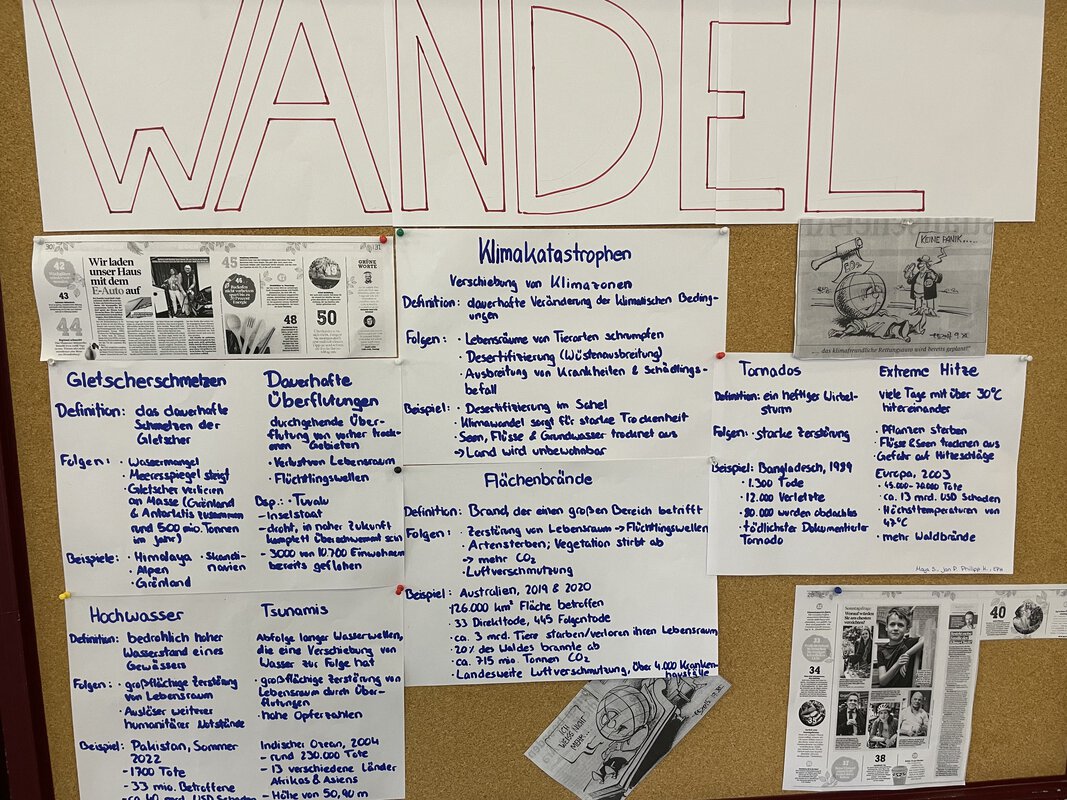 WANDEL
30
31
42
43
44
Wir laden
unser Haus
mit dem
E-Auto auf
45
44
48
50
GRÜNE
WORTE
Klimakatastrophen
Verschiebung von Klimazonen
Definition: dauerhafte Veränderung der klimatischen Beding-
ungen
Folgen: · Lebensräume von Tierarten schrumpfen
· Desertifizierung (Wüstenausbreitung)
· Ausbreitung von Krankheiten & Schädlings-
befall
Beispiel: · Desertifizierung im Sahel
· Klimawandel sorgt für starke Trockenheit
· Seen, Flüsse & Grundwasser trocknet aus
→ Land wird unbewohnbar
KEINE PANIK....
CO2
...das klimafreundliche Rettungsauto wird bereits geplant!"
Gletscherschmelzen
Definition: das dauerhafte
Schmelzen der
Gletscher
Folgen: · Wassermangel
· Meeresspiegel steigt
· Gletscher verlieren
an Masse (Grönland
& Antarktis zusammen
rund 500 mio. Tonnen
im Jahr)
Beispiele: · Himalaya · Skandi-
· Alpen navien
· Grönland
Dauerhafte
Überflutungen
durchgehende Über-
flutung von vorher trock-
enen Gebieten
· Verlust von Lebensraum
· Flüchtlingswellen
Bsp.: · Tuvalu
- Inselstaat
- droht, in naher Zukunft
komplett überschwemmt sein
- 3000 von 10.700 Einwohnern
bereits geflohen
Flächenbrände
Definition: Brand der einen großen Bereich betrifft
Folgen: · Zerstörung von Lebensraum → Flüchtlingswellen
· Artensterben; Vegetation stirbt ab
→ mehr CO2
· Luftverschmutzung
Beispiel: Australien, 2019 & 2020
· 126.000 km² Fläche betroffen
· 33 Direkttode, 445 Folgentode
· ca. 3 mrd. Tiere starben/verloren ihren Lebensraum
· 20% des Waldes brannte ab
· ca. 715 mio. Tonnen CO2
· Landesweite Luftverschmutzung, Über 4.000 Kranken-
hausfälle
Tornados
Definition: ein heftiger Wirbel-
sturm
Folgen: · starke Zerstörung
Beispiel: Bangladesch, 1989
· 1.300 Tode
· 12.000 Verletzte
· 80.000 wurden obdachlos
· tödlichster Dokumentierter
Tornado
Extreme Hitze
viele Tage mit über 30°C
hintereinander
· Pflanzen sterben
· Flüsse & Seen trocknen aus
· Gefahr auf Hitzeschläge
Europa, 2003
· 45.000-70.000 Tote
· ca. 13 mrd. USD Schaden
· Höchsttemperaturen von
47°C
· mehr Waldbrände
Maya S., Jan P. Philipp K., EPH
Hochwasser
Definition: bedrohlich hoher
Wasserstand eines
Gewässers
Folgen: · großflächige Zerstörung
von Lebensraum
· Auslöser weiterer
humanitärer Notstände
Beispiel: Pakistan, Sommer
2022
- 1700 Tote
- 33 mio. Betroffene
- ca. 40 mrd. USD Schaden
Tsunamis
Abfolge langer Wasserwellen,
die eine Verschiebung von
Wasser zur Folge hat
· großflächige Zerstörung von
Lebensraum durch Über-
flutungen
· hohe Opferzahlen
Indischer Ozean, 2004
- rund 230.000 Tote
- 13 verschiedene Länder
Afrikas & Asiens
- Höhe von 50,90 m
34
38
40